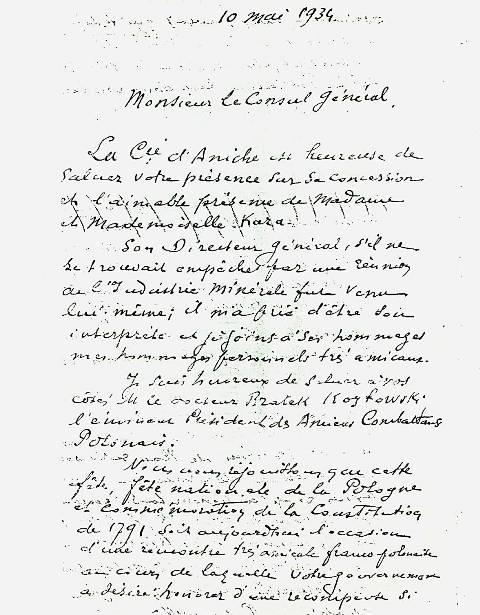 10 mai 1934
Monsieur le Consul Général,
La Cie d'Aniche est heureuse de
saluer votre présence sur sa concession
et l'aimable présence de Madame
et Mademoiselle Kara.
Son Directeur général, s'il ne
se trouvait empêché par une réunion
de l'Industrie Minérale fut venu
lui même; il m'a prié d'être son
interprète et je joins à ses hommages
mes hommages personnels très amicaux.
Je suis heureux de saluer à vos
côtés M le docteur Bratek Kozlowski
l'éminent Président des Anciens Combattants
Polonais.
Nous nous réjouissons que cette
fête, fête nationale de la Pologne
et commémoration de la Constitution
de 1791 soit aujourd'hui l'occasion
d'une rencontre très amicale franco polonaise
au cours de laquelle votre gouvernement
a désiré honorer d'une récompense si